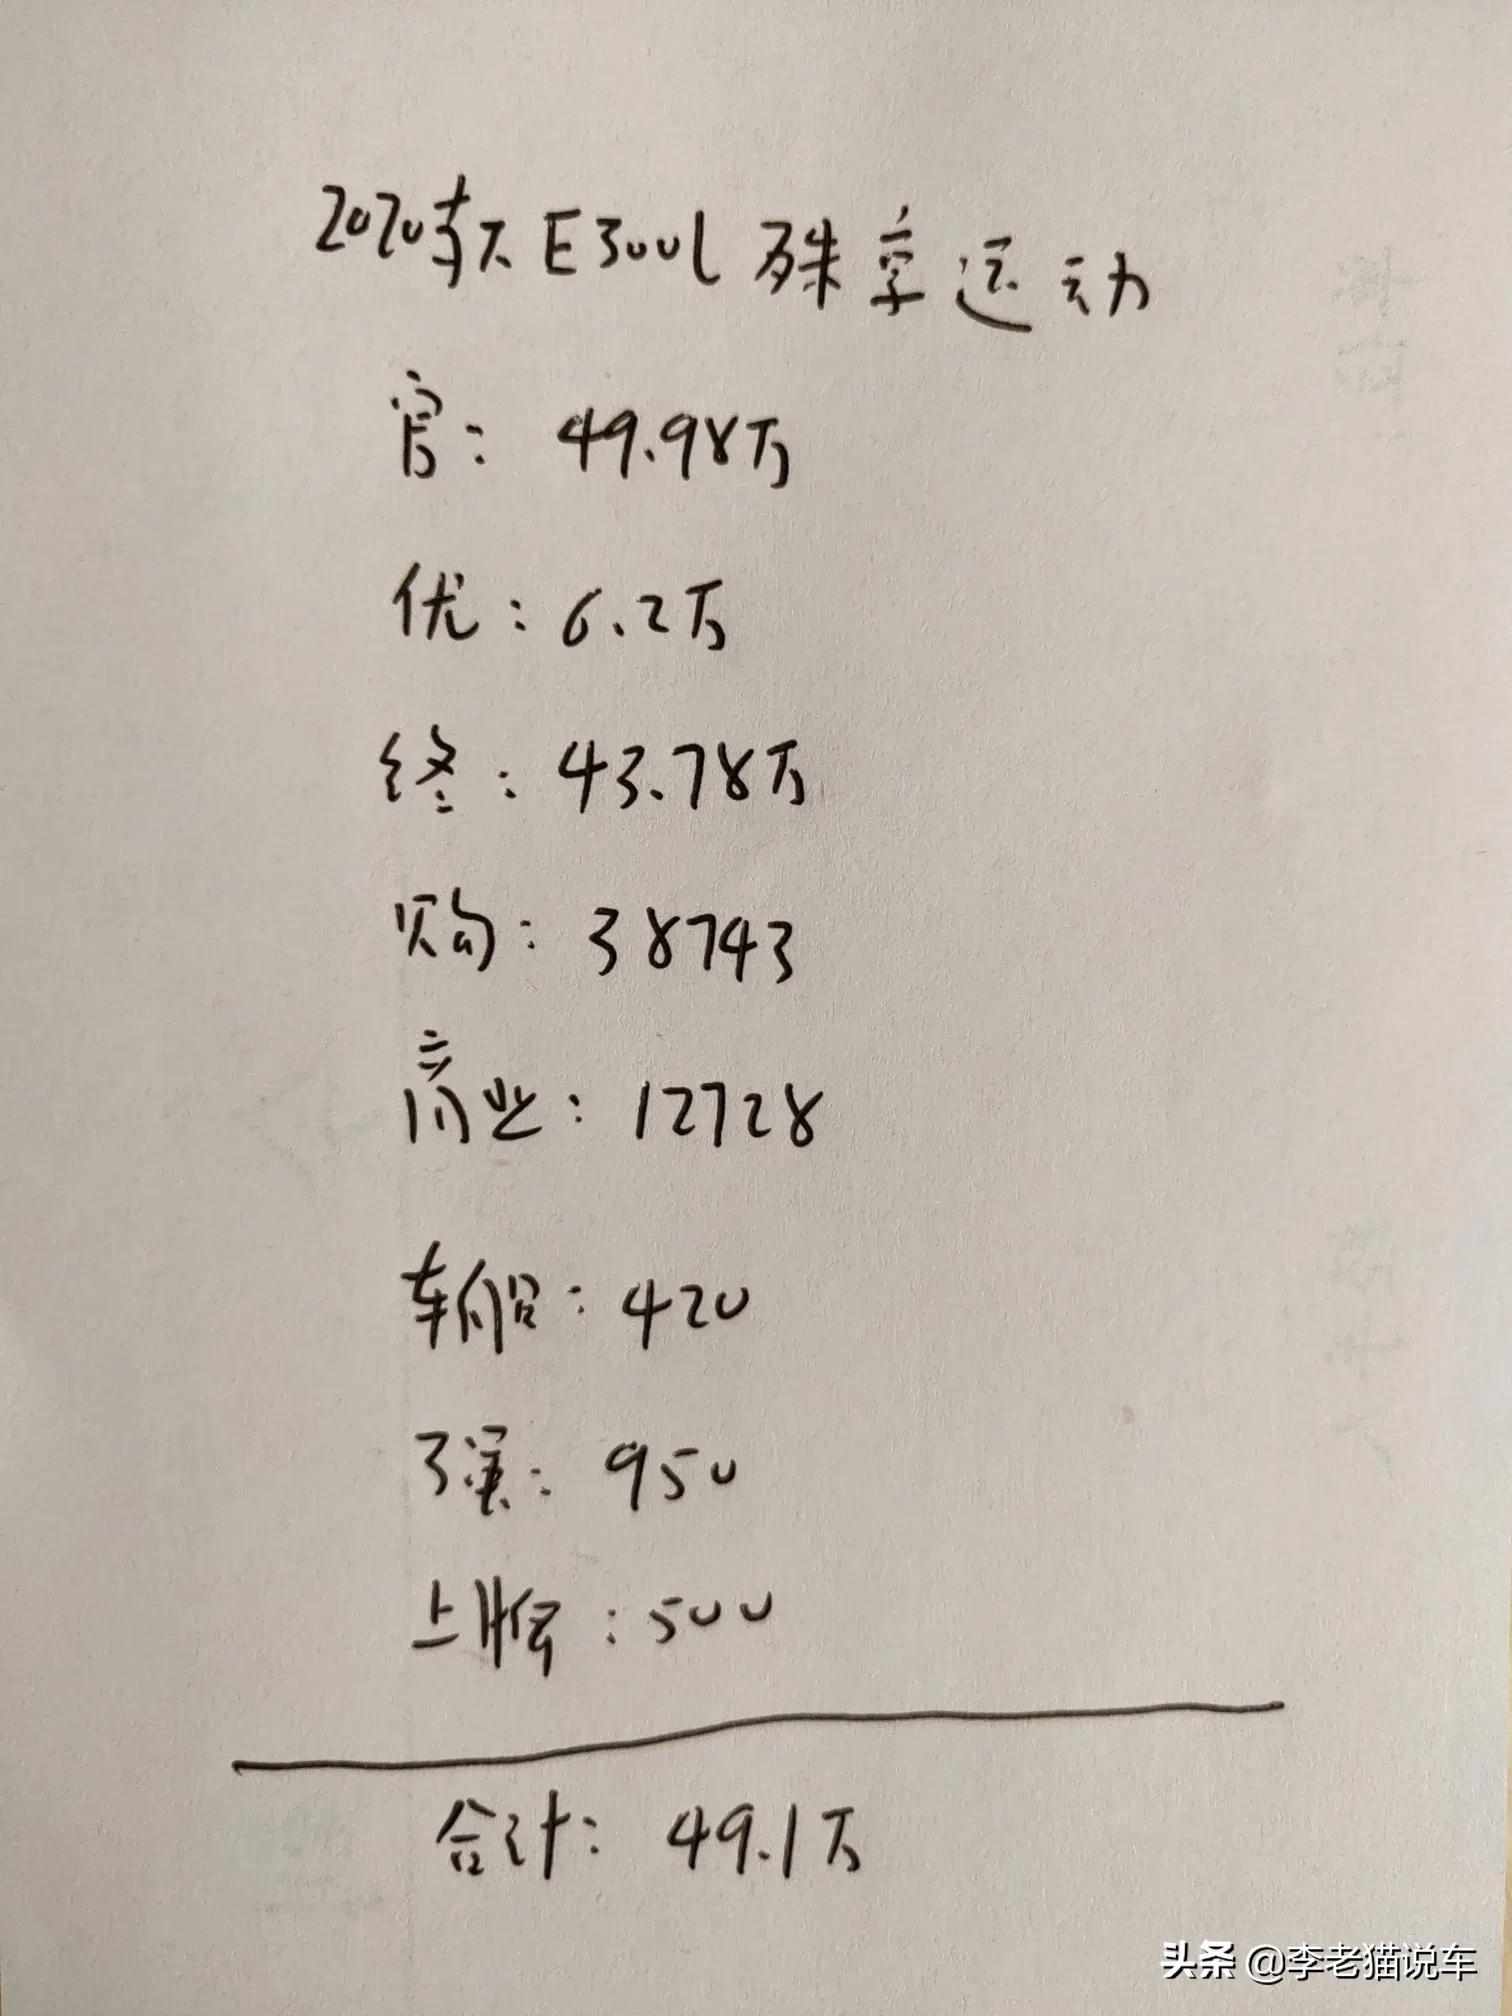 2020款E300L殊享运动
官：49.98万
优：6.2万
终：43.78万
购：38743
商业：12728
车船：420
了强：950
上牌：500
合计：49.1万
头条@李老猫说车